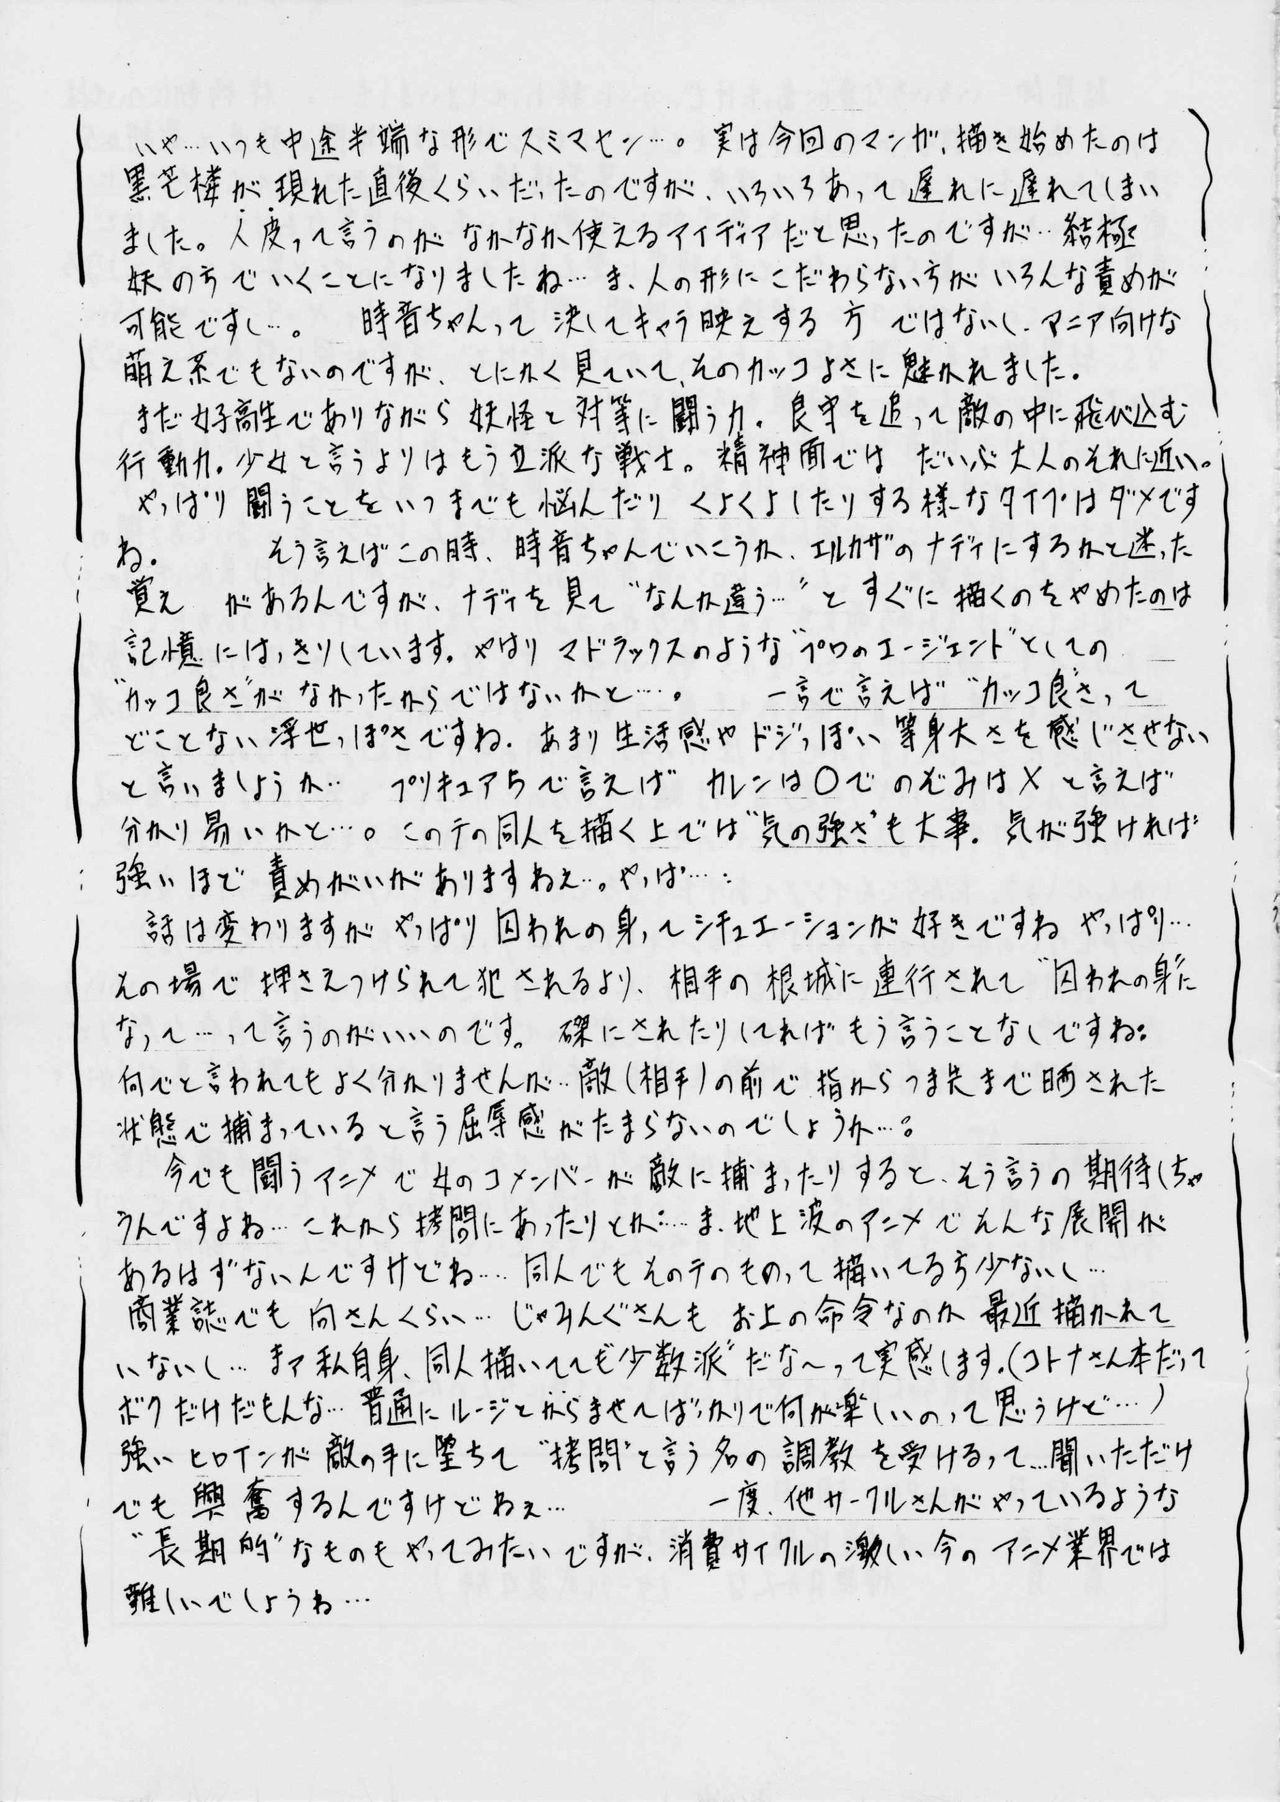 いや…いつも中途半端な形でスミマセン…。実は今回のマンガ、描き始めたのは
黒芒楼が現れた直後くらいだったのですが、いろいろあって遅れに遅れてしまい
ました。人皮って言うのがなかなか使えるアイディアだと思ったのですが…結極
妖の方でいくことになりましたね…ま、人の形にこだわらない方がいろんな責めが
可能ですし…。 時音ちゃんって決してキャラ映えする方ではないし、マニア向けな
萌え系でもないのですが、とにかく見ていて、そのカッコよさに魅かれました。
まだ女子高生でありながら妖怪と対等に闘う力。良守を追って敵の中に飛び込む
行動力。少女と言うよりはもう立派な戦士。精神面ではだいぶ大人のそれに近い。
やっぱり闘うことをいつまでも悩んだりくよくよしたりする様なタイプはダメです
ね。 そう言えばこの時、時音ちゃんでいこうか、エルカザのナディにするかと迷った
覚えがあるんですが、ナディを見て“なんか違う…”とすぐに描くのをやめたのは
記憶にはっきりしています。やはりマドラックスのような“プロのエージェント”としての
“カッコ良さ”がなかったからではないかと…。 一言で言えば“カッコ良”さって
どことない浮世っぽさですね。あまり生活感やドジっぽい等身大さを感じさせない
と言いましょうか… プリキュア5で言えばカレンは○でのぞみは×と言えば
分かり易いかと…。このテの同人を描く上では“気の強さ”も大事。気が強ければ
強いほど責めがいがありますねぇ…。やっぱ…
話は変わりますがやっぱり囚われの身ってシチュエーションが好きですねやっぱり…
その場で押さえつけられて犯されるより、相手の根城に連行されて“囚われの身”に
なって…って言うのがいいのです。磔にされたりしてればもう言うことなしですね。
何でと言われてもよく分かりませんが…敵(相手)の前で指からつま先まで晒された
状態で捕まっていると言う屈辱感がたまらないのでしょうか…。
今でも闘うアニメで女のコメンバーが敵に捕まったりすると、そう言うの期待しちゃ
うんですよね…これから拷問にあったりとか…ま、地上波のアニメでそんな展開が
あるはずないんですけどね… 同人でもそのテのものって描いてる方少ないし…
商業誌でも向さんくらい…じゃみんぐさんもお上の命令なのか最近描かれて
いないし…まァ私自身、同人描いてても“少数派”だな〜って実感します。(コトナさん本だって
ボクだけだもんな…普通にルージとからませてばっかりで何が楽しいのって思うけど…)
強いヒロインが敵の手に堕ちて“拷問”と言う名の調教を受けるって…聞いただけ
でも興奮するんですけどねぇ… 一度、他サークルさんがやっているような
“長期的”なものもやってみたいですが、消費サイクルの激しい今のアニメ業界では
難しいでしょうね…